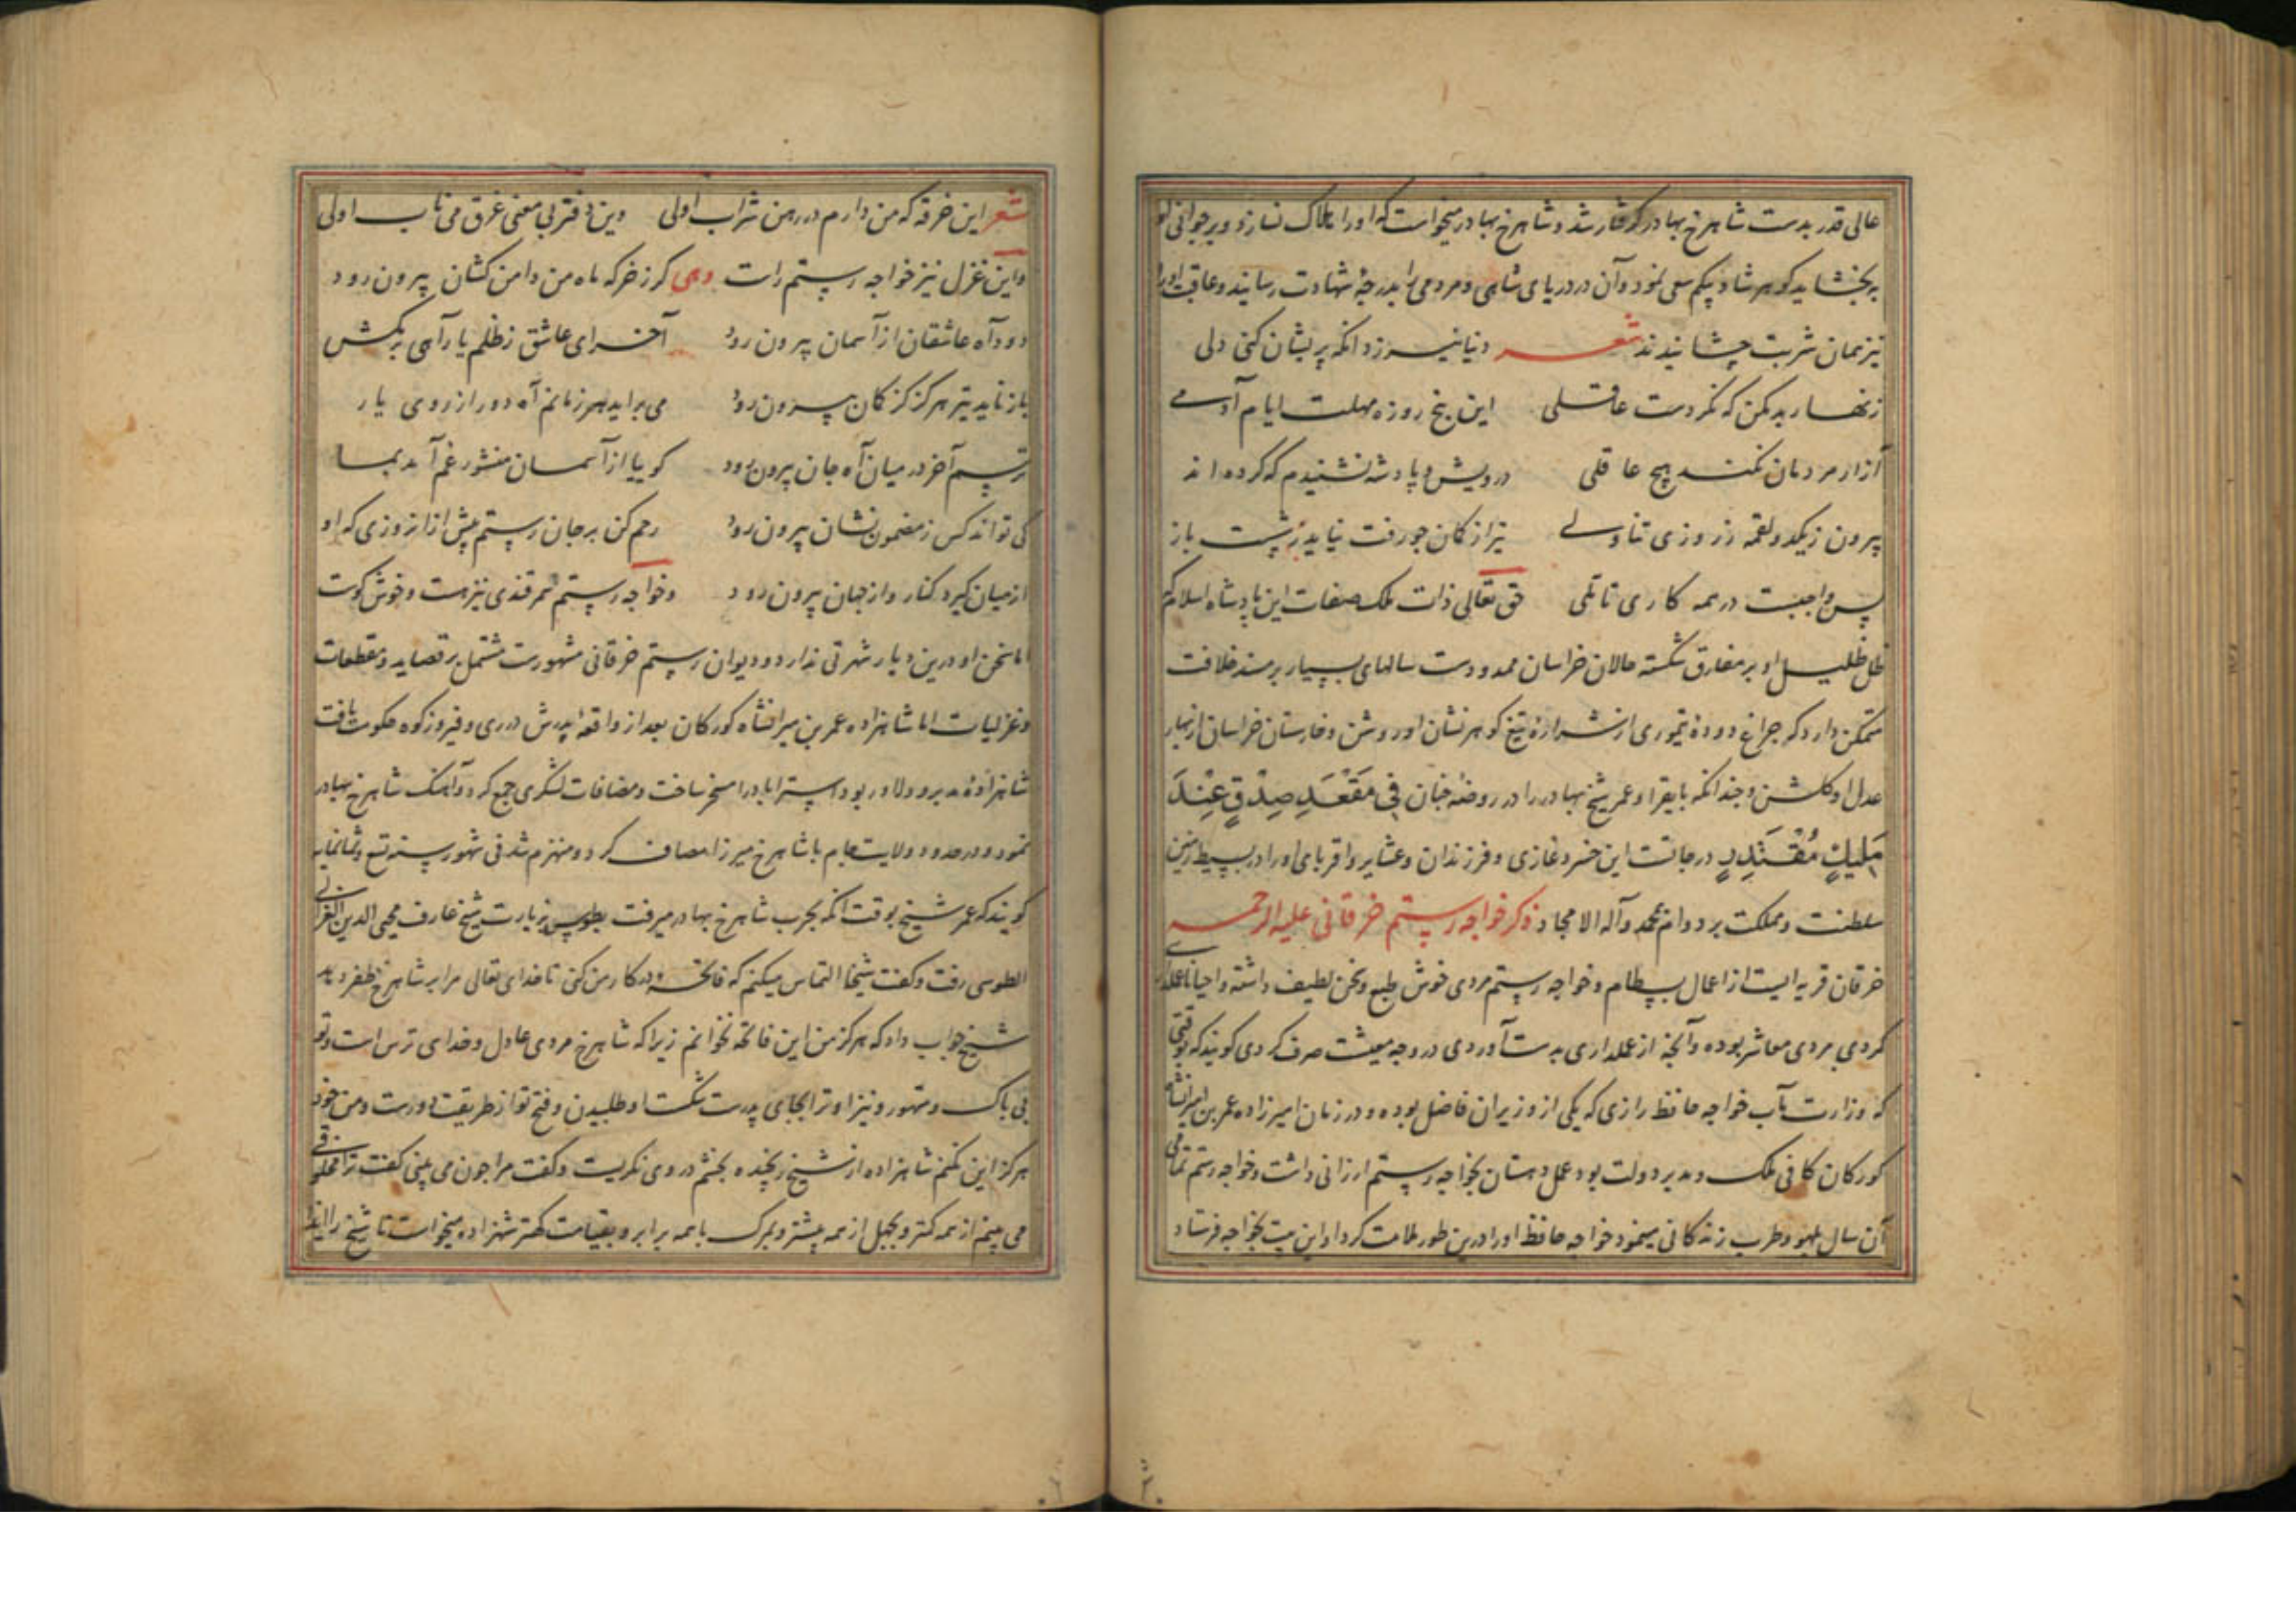 عالی قدر بدست شاهرخ بهادر گرفتار شد و شاهرخ بهادر میخواست که او را هلاک نسازد و بر جوانی او
ببخشاید گوهرشاد بیگم سعی نمود و آن در دریای شاهی و مردمی را بدرجهٔ شهادت رسانیدند و عاقبت او را
نیز همان شربت چشانیدند شعر دنیا نیرزد آنکه پریشان کنی دلی
زنهار بد مکن که نکردست عاقلی این پنج روزه مهلت ایام آدمی
آزار مردمان نکند هیچ عاقلی درویش و پادشه نشنیدم که کرده‌اند
بیرون زیکدو لقمه ز روزی تناولی تیر از کمان چو رفت نیاید ز شست باز
پس واجبست در همه کاری تأملی حق تعالی ذات ملک صفات این پادشاه اسلام که
ظل ظلیل او بر مفارق شکسته حالان خراسان ممدودست سالهای بسیار بر مسند خلافت
متمکن دارد که چراغ دودهٔ تیموری از شرارهٔ تیغ گوهرنشان او روشن و خارستان خراسان از بهار
عدل او گلشن و چندانکه بایقرا و عمر شیخ بهادر را در روضهٔ جنان فِی مَقْعَدِ صِدْقٍ عِنْدَ
مَلِیکٍ مُقْتَدِرٍ درجاتست این خسرو غازی و فرزندان و عشایر و اقربای او را در بسیط زمین
سلطنت و مملکت بر دوام بمحمد و آله الامجاد ذکر خواجه رستم خرقانی علیه الرحمه
خرقان قریه ایست از اعمال بسطام و خواجه رستم مردی خوش طبع و سخن لطیف داشته و احیانا عملداری
کردی مردی معاشر بوده و آنچه از عملداری بدست آوردی در وجه معیشت صرف کردی گویند که بوقتی
که وزارت مآب خواجه حافظ رازی که یکی از وزیران فاضل بوده و در زمان امیرزاده عمر بن امیرانشاه
کورکان کافی ملک و مدبر دولت بود عمل دهستان بخواجه رستم ارزانی داشت و خواجه رستم تمامی
آن سال بلهو و طرب زندگانی مینمود خواجه حافظ او را درین طور ملامت کرد او این بیت بخواجه فرستاد
شعر این خرقه که من دارم در رهن شراب اولی وین دفتر بی معنی غرق می ناب اولی
و این غزل نیز خواجه رستم راست وهی کز خرکه ماه من دامن کشان بیرون رود
دود آه عاشقان از آسمان بیرون رود آخر ای عاشق ز ظلم یار آهی بر مکش
باز ناید تیر هرگز کز کمان بیرون رود می براید هر زمانم آه دور از روی یار
ترسم آخر در میان آه جان بیرون رود گوییا از آسمان منشور غم آمد بما
کی تواند کس ز مضمون نشان بیرون رود رحم کن بر جان رستم پیش ازان روزی که او
از میان گیرد کنار و از جهان بیرون رود و خواجه رستم سمرقندی نیز هست و خوش گوست
اما سخن او درین دیار شهرتی ندارد و دیوان رستم خرقانی مشهورست مشتمل بر قصاید و مقطعات
و غزلیات اما شاهزاده عمر بن میرانشاه کورکان بعد از واقعه پدرش در ری و فیروزکوه حکومت یافت
شاهزادهٔ مدبر و دلاور بود استراباد را مسخر ساخت و مضافات لشکری جمع کرد و آهنگ شاهرخ بهادر
نمود و در حدود ولایت جام با شاهرخ میرزا مصاف کرد و منهزم شد فی شهور سنه تسع و ثمانمایه
گویند که عمر شیخ بوقت آنکه بحرب شاهرخ بهادر میرفت بطوس بزیارت شیخ عارف محیی الدین الغزالی
الطوسی رفت و گفت شیخا التماس میکنم که فاتحه در کار من کنی تا خدای تعالی مرا بر شاهرخ ظفر دهد
شیخ جواب داد که هرگز من این فاتحه نخوانم زیرا که شاهرخ مردی عادل و خدای ترس است و تو
بی باک و متهور و نیز او ترا بجای پدرست شکست او طلبیدن و فتح تو از طریقت دورست و من خود
هرگز این نکنم شاهزاده از شیخ رنجیده بخشم در وی نگریست و گفت مرا چون می بینی گفت ترا مخلوقی
می بینم از همه کمتر و بجهل از همه بیشتر و بمرگ با همه برابر و بقیامت کمتر شهزاده میخواست تا شیخ را ایذا